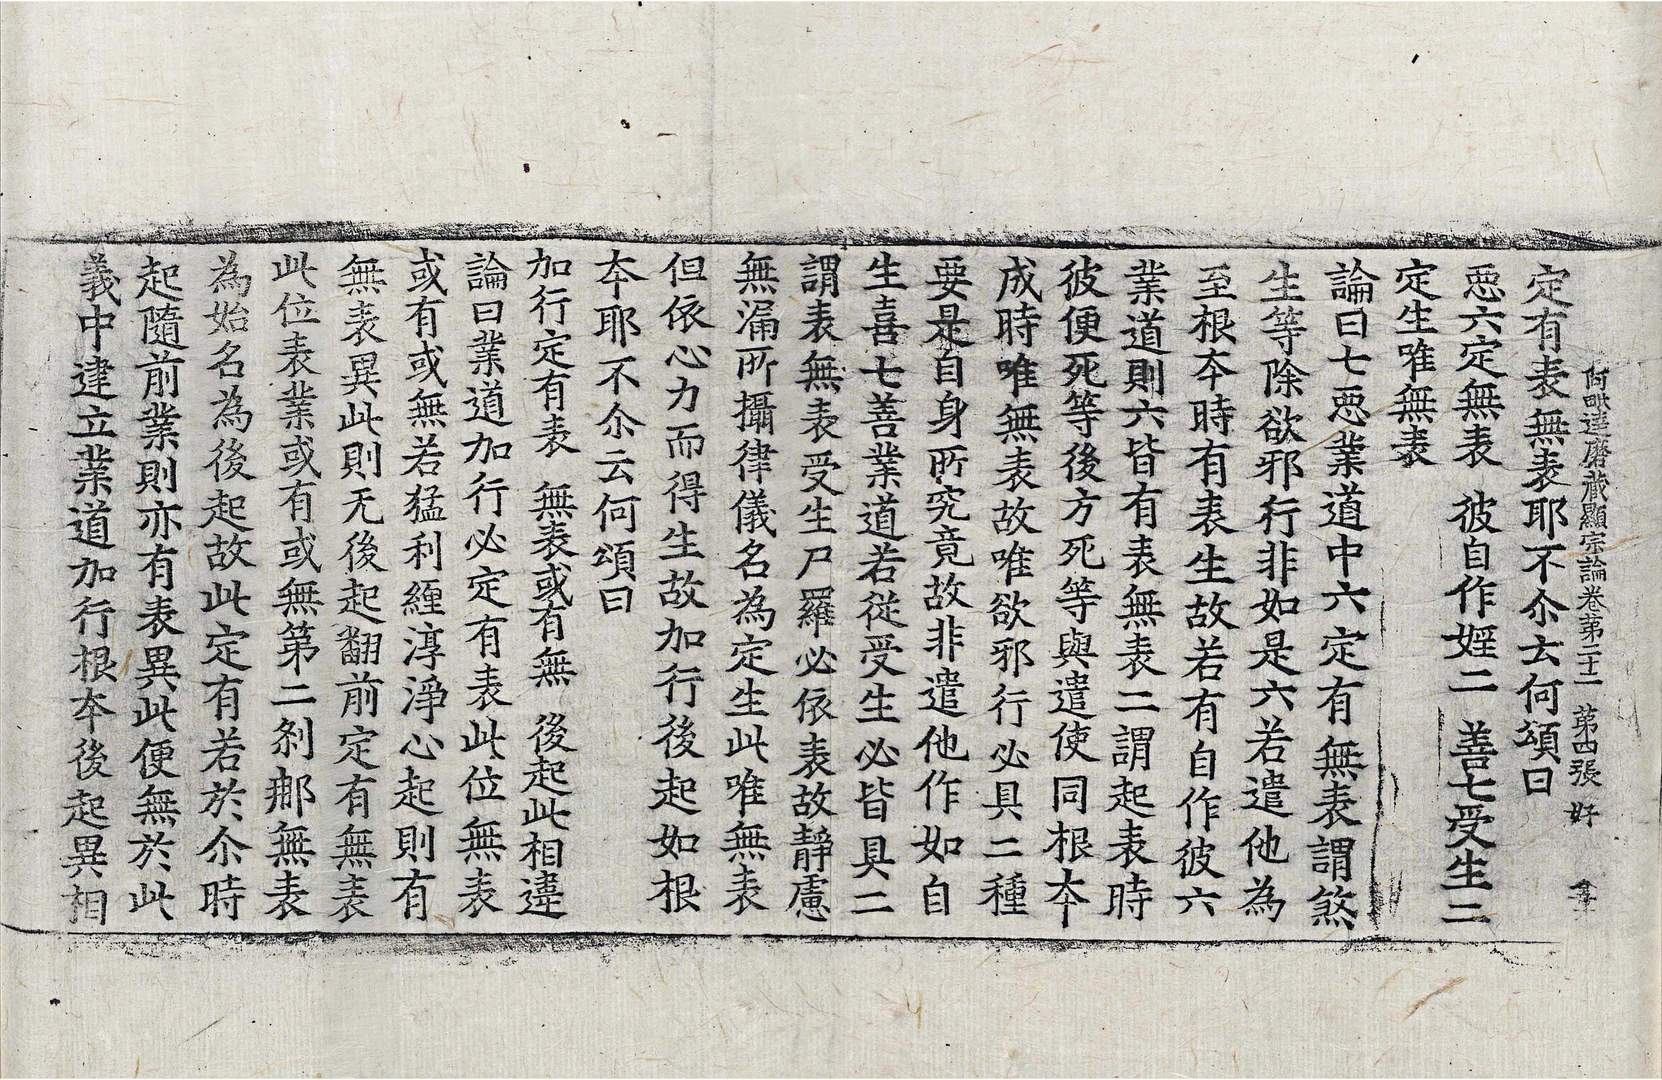 阿毗達磨藏顯宗論卷第二十二 第四張 好
定有表無表耶不尒云何頌曰
惡六定無表 彼自作婬二 善七受生二
定生唯無表
論曰七惡業道中六定有無表謂煞
生等除欲邪行非如是六若遣他為
至根本時有表生故若有自作彼六
業道則六皆有表無表二謂起表時
彼便死等後方死等與遣使同根本
成時唯無表故唯欲邪行必具二種
要是自身所究竟故非遣他作如自
生喜七善業道若從受生必皆具二
謂表無表受生尸羅必依表故靜慮
無漏所攝律儀名為定生此唯無表
但依心力而得生故加行後起如根
本耶不尒云何頌曰
加行定有表 無表或有無 後起此相違
論曰業道加行必定有表此位無表
或有或無若猛利纏淳淨心起則有
無表異此則无後起翻前定有無表
此位表業或有或無第二剎那無表
為始名為後起故此定有若於尒時
起隨前業則亦有表異此便無於此
義中建立業道加行根本後起異相